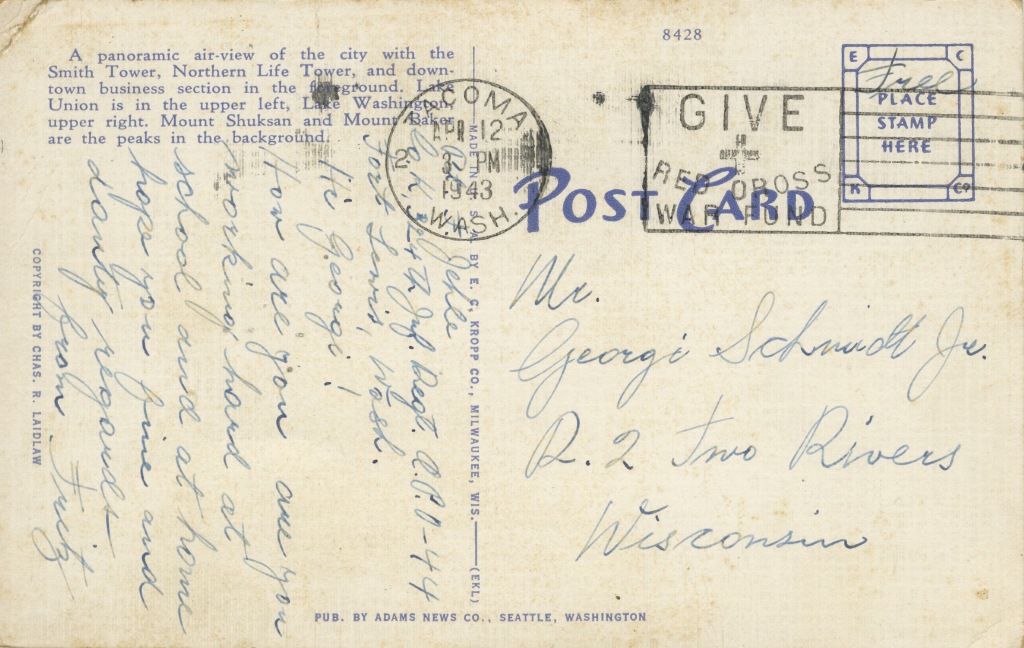 8428
A panoramic air-view of the city with the
Smith Tower, Northern Life Tower, and down-
town business section in the foreground. Lake
Union is in the upper left, Lake Washington,
upper right. Mount Shuksan and Mount Baker
are the peaks in the background.
TACOMA
APR 12
3 PM
1943
WASH.
2
GIVE
RED CROSS
WAR FUND
Free
E C
PLACE
STAMP
HERE
K Co
POST CARD
Jehle
Co. K 24th Inf. Regt. A.P.O-44
Fort Lewis, Wash.
Hi Georgi!
How are you are you
working hard at
school and at home
hope you fine and
dandy regards
from Fritz
Mr.
Georgi Schmidt Jr.
R. 2 Two Rivers
Wisconsin
MADE IN U.S.A. BY E. C. KROPP CO., MILWAUKEE, WIS. (EKL)
COPYRIGHT BY CHAS. R. LAIDLAW
PUB. BY ADAMS NEWS CO., SEATTLE, WASHINGTON